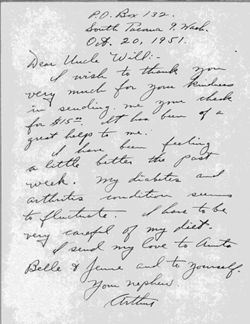 P.O. Box 132.
South Tacoma 9, Wash.
Oct. 20, 1951.
Dear Uncle Will:-
I wish to thank you
very much for your kindness
in sending me your check
for $15.00 It has been of a
great help to me.
I have been feeling
a little better the past
week. My diabetes and
arthritis condition seems
to fluctuate. I have to be
very careful of my diet.
I send my love to Aunts
Belle & Jennie and to yourself.
Your nephew
Arthur